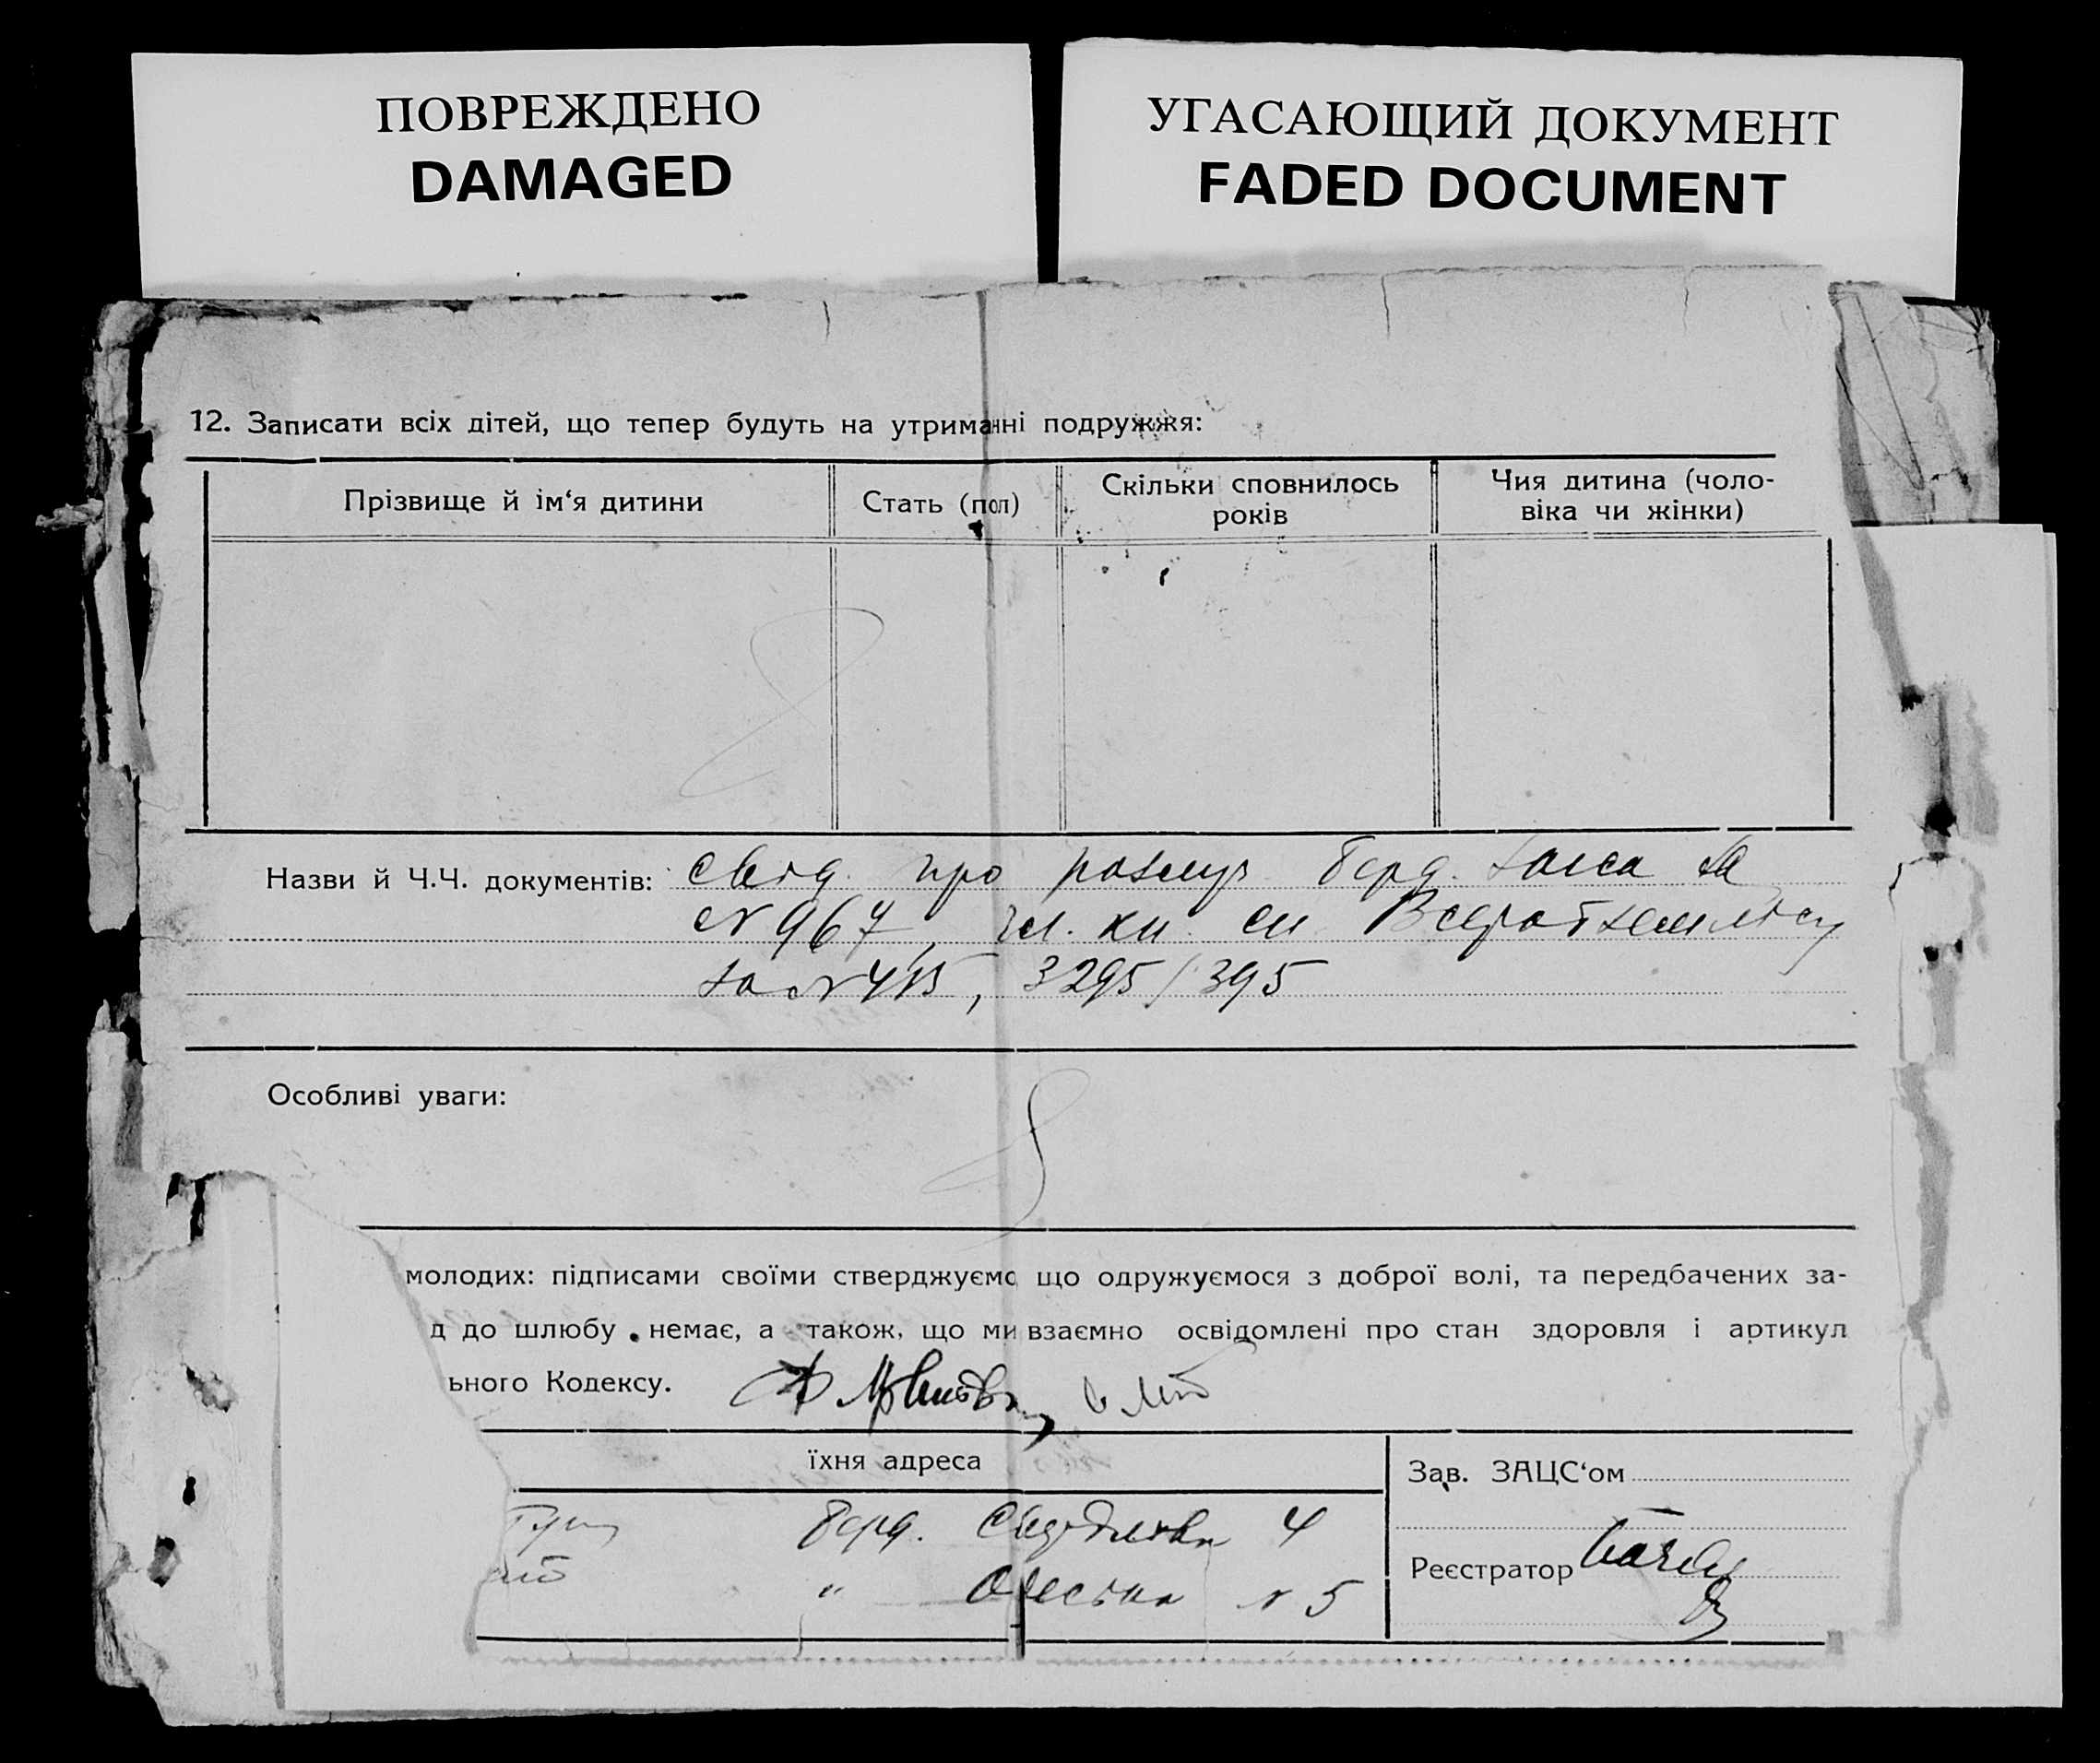 ПОВРЕЖДЕНО
DAMAGED
УГАСАЮЩИЙ ДОКУМЕНТ
FADED DOCUMENT
12. Записати всіх дітей, що тепер будуть на утриманні подружжя:
Прізвище й ім‘я дитини
Стать (пол)
Скільки сповнилось
років
Чия дитина (чоло-
віка чи жінки)
Назви й Ч.Ч. документів: свід. про берд. за
№ 967, чл. кн.
за № 3295/395
Особливі уваги:
молодих: підписами своїми стверджуємо що одружуємося з доброї волі, та передбачених за-
д до шлюбу немає, а також, що ми взаємно освідомлені про стан здоровля і артикул
ьного Кодексу.
їхня адреса
Зав. ЗАЦС‘ом
Берд. 4
" № 5
Реєстратор